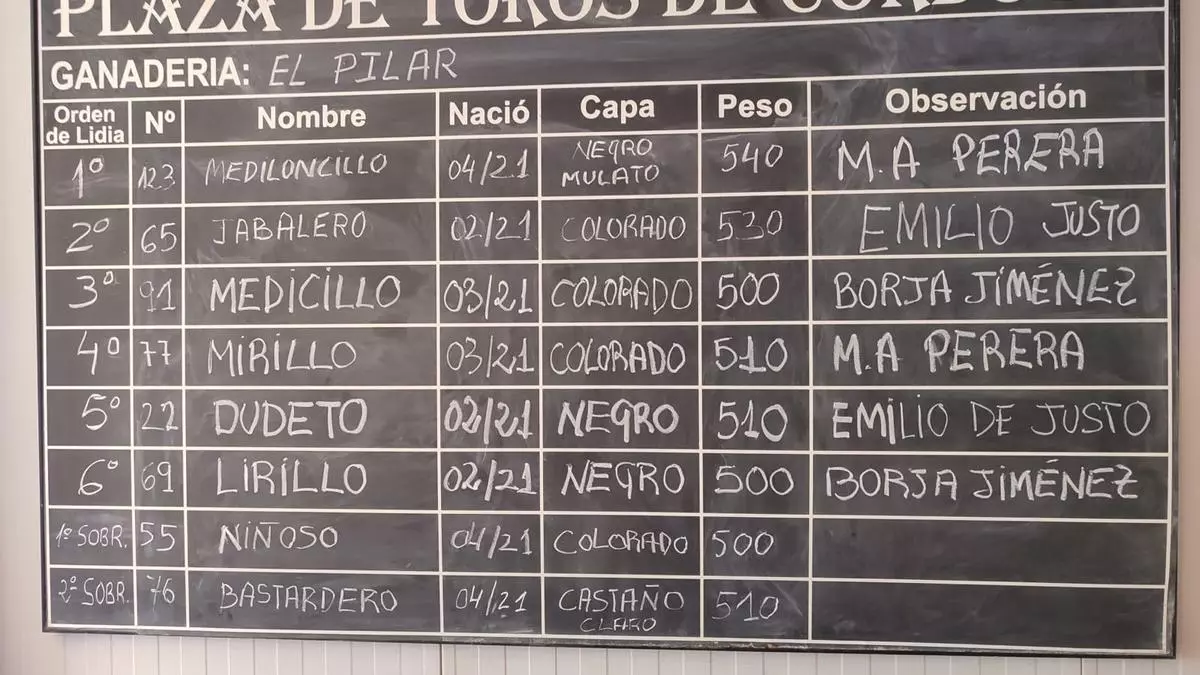 PLAZA DE TOROS DE CÓRDOB
GANADERIA: EL PILAR
Orden de Lidia Nº Nombre Nació Capa Peso Observación
1º 123 MEDILONCILLO 04/21 NEGRO MULATO 540 M.A PERERA
2º 65 JABALERO 02/21 COLORADO 530 EMILIO JUSTO
3º 91 MEDICILLO 03/21 COLORADO 500 BORJA JIMÉNEZ
4º 77 MIRILLO 03/21 COLORADO 510 M.A PERERA
5º 22 DUDETO 02/21 NEGRO 510 EMILIO DE JUSTO
6º 69 LIRILLO 02/21 NEGRO 500 BORJA JIMÉNEZ
1º SOBR. 55 NIÑOSO 04/21 COLORADO 500
2º SOBR. 76 BASTARDERO 04/21 CASTAÑO CLARO 510